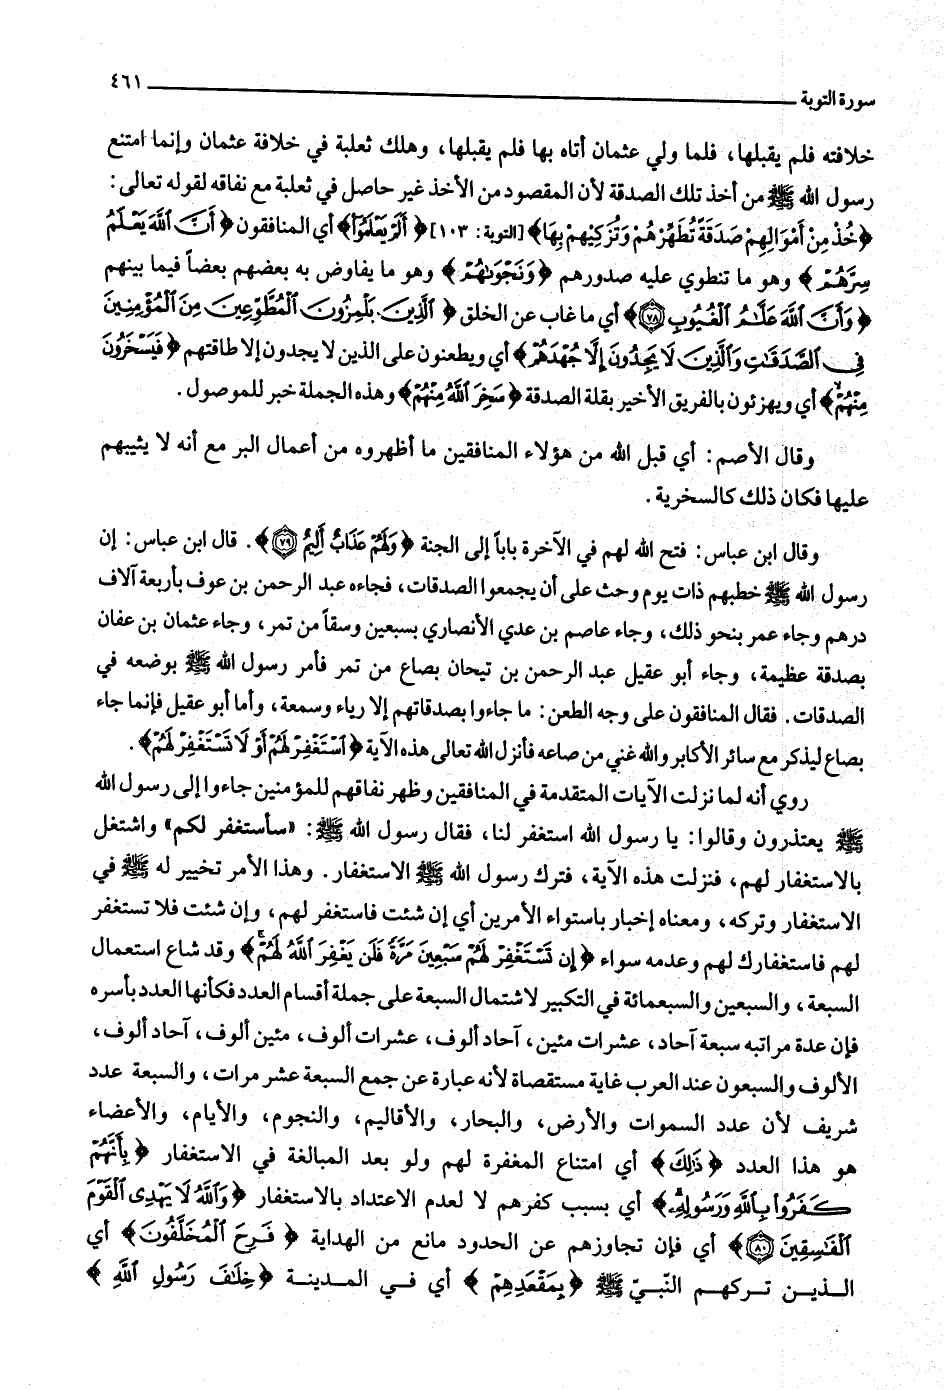 سورة التوبة ٤٦١
خلافته فلم يقبلها، فلما ولي عثمان أتاه بها فلم يقبلها، وهلك ثعلبة في خلافة عثمان وإنما امتنع
رسول الله ﷺ من أخذ تلك الصدقة لأن المقصود من الأخذ غير حاصل في ثعلبة مع نفاقه لقوله تعالى:
﴿خُذْ مِنْ أَمْوَالِهِمْ صَدَقَةً تُطَهِّرُهُمْ وَتُزَكِّيهِمْ بِهَا﴾ [التوبة: ١٠٣] ﴿أَلَمْ يَعْلَمُوٓا۟﴾ أي المنافقون ﴿أَنَّ ٱللَّهَ يَعْلَمُ
سِرَّهُمْ﴾ وهو ما تنطوي عليه صدورهم ﴿وَنَجْوَىٰهُمْ﴾ وهو ما يفاوض به بعضهم بعضاً فيما بينهم
﴿وَأَنَّ ٱللَّهَ عَلَّٰمُ ٱلْغُيُوبِ ٧٨﴾ أي ما غاب عن الخلق ﴿ٱلَّذِينَ يَلْمِزُونَ ٱلْمُطَّوِّعِينَ مِنَ ٱلْمُؤْمِنِينَ
فِى ٱلصَّدَقَٰتِ وَٱلَّذِينَ لَا يَجِدُونَ إِلَّا جُهْدَهُمْ﴾ أي ويطعنون على الذين لا يجدون إلا طاقتهم ﴿فَيَسْخَرُونَ
مِنْهُمْ ۙ﴾ أي ويهزئون بالفريق الأخير بقلة الصدقة ﴿سَخِرَ ٱللَّهُ مِنْهُمْ﴾ وهذه الجملة خبر للموصول.
وقال الأصم: أي قبل الله من هؤلاء المنافقين ما أظهروه من أعمال البر مع أنه لا يثيبهم
عليها فكان ذلك كالسخرية.
وقال ابن عباس: فتح الله لهم في الآخرة باباً إلى الجنة ﴿وَلَهُمْ عَذَابٌ أَلِيمٌ ٧٩﴾. قال ابن عباس: إن
رسول الله ﷺ خطبهم ذات يوم وحث على أن يجمعوا الصدقات، فجاءه عبد الرحمن بن عوف بأربعة آلاف
درهم وجاء عمر بنحو ذلك، وجاء عاصم بن عدي الأنصاري بسبعين وسقاً من تمر، وجاء عثمان بن عفان
بصدقة عظيمة، وجاء أبو عقيل عبد الرحمن بن تيحان بصاع من تمر فأمر رسول الله ﷺ بوضعه في
الصدقات. فقال المنافقون على وجه الطعن: ما جاءوا بصدقاتهم إلا رياء وسمعة، وأما أبو عقيل فإنما جاء
بصاع ليذكر مع سائر الأكابر والله غني من صاعه فأنزل الله تعالى هذه الآية ﴿ٱسْتَغْفِرْ لَهُمْ أَوْ لَا تَسْتَغْفِرْ لَهُمْ﴾.
روي أنه لما نزلت الآيات المتقدمة في المنافقين وظهر نفاقهم للمؤمنين جاءوا إلى رسول الله
ﷺ يعتذرون وقالوا: يا رسول الله استغفر لنا، فقال رسول الله ﷺ: «سأستغفر لكم» واشتغل
بالاستغفار لهم، فنزلت هذه الآية، فترك رسول الله ﷺ الاستغفار. وهذا الأمر تخيير له ﷺ في
الاستغفار وتركه، ومعناه إخبار باستواء الأمرين أي إن شئت فاستغفر لهم، وإن شئت فلا تستغفر
لهم فاستغفارك لهم وعدمه سواء ﴿إِن تَسْتَغْفِرْ لَهُمْ سَبْعِينَ مَرَّةً فَلَن يَغْفِرَ ٱللَّهُ لَهُمْ ۚ﴾ وقد شاع استعمال
السبعة، والسبعين والسبعمائة في التكبير لاشتمال السبعة على جملة أقسام العدد فكأنها العدد بأسره
فإن عدة مراتبه سبعة آحاد، عشرات مئين، آحاد ألوف، عشرات ألوف، مئين ألوف، آحاد ألوف،
الألوف والسبعون عند العرب غاية مستقصاة لأنه عبارة عن جمع السبعة عشر مرات، والسبعة عدد
شريف لأن عدد السموات والأرض، والبحار، والأقاليم، والنجوم، والأيام، والأعضاء
هو هذا العدد ﴿ذَٰلِكَ﴾ أي امتناع المغفرة لهم ولو بعد المبالغة في الاستغفار ﴿بِأَنَّهُمْ
كَفَرُوا۟ بِٱللَّهِ وَرَسُولِهِۦ ۗ﴾ أي بسبب كفرهم لا لعدم الاعتداد بالاستغفار ﴿وَٱللَّهُ لَا يَهْدِى ٱلْقَوْمَ
ٱلْفَٰسِقِينَ ٨٠﴾ أي فإن تجاوزهم عن الحدود مانع من الهداية ﴿فَرِحَ ٱلْمُخَلَّفُونَ﴾ أي
الذين تركهم النّبيّ ﷺ ﴿بِمَقْعَدِهِمْ﴾ أي في المدينة ﴿خِلَٰفَ رَسُولِ ٱللَّهِ﴾